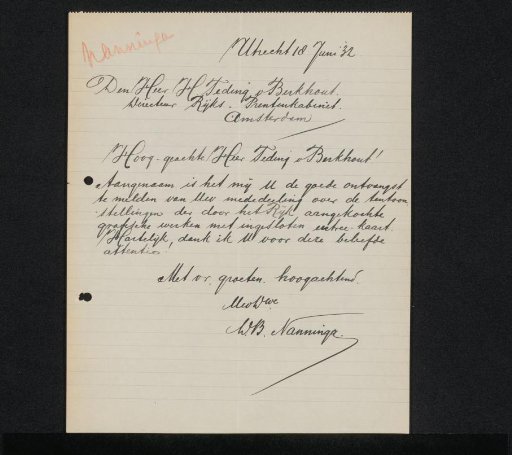 Nanninga
Utrecht 18 Juni '32
Den Heer H Teding v Berkhout.
Directeur Rijks. Prentenkabinet.
Amsterdam
Hoog geachte Heer Teding v Berkhout!
Aangenaam is het mij U de goede ontvangst
te melden van Uw mededeeling over de tentoon
stellingen der door het Rijk aangekochte
grafische werken met ingesloten entree kaart.
Hartelijk, dank ik U voor deze beleefde
attentie.
Met vr. groeten, hoogachtend
Mevr. We
W.B. Nanninga.